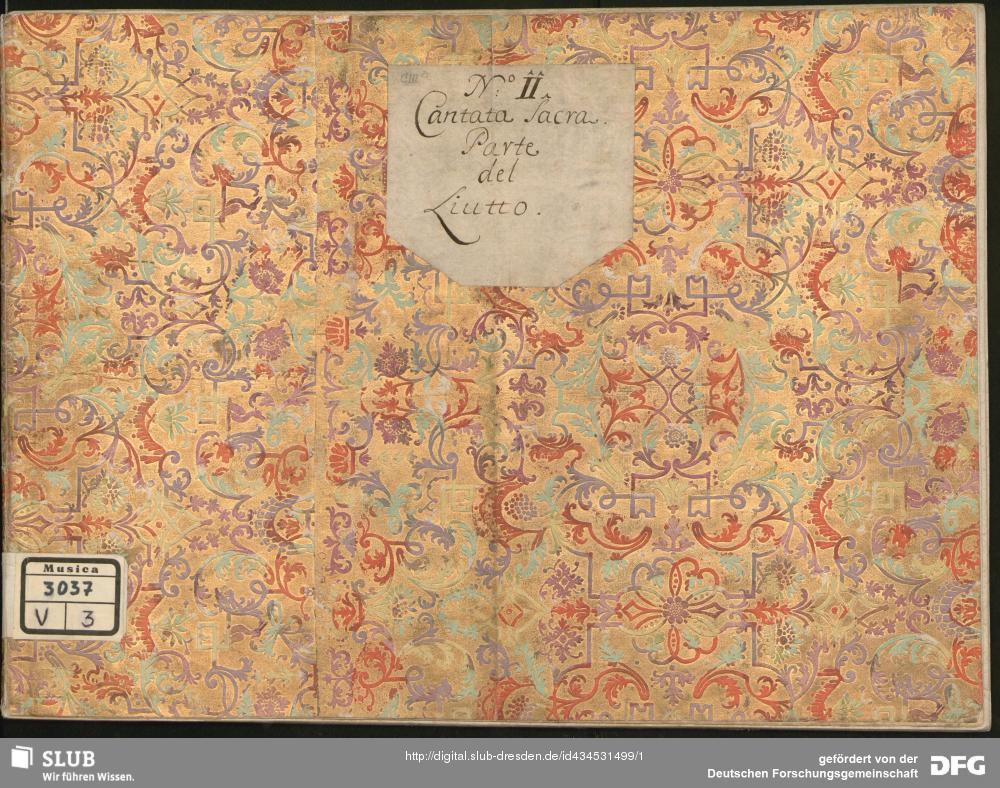 N:o II
Cantata Sacra.
Parte
del
Liutto.
Musica
3037
V 3
SLUB
Wir führen Wissen.
http://digital.slub-dresden.de/id434531499/1
gefördert von der
Deutschen Forschungsgemeinschaft
DFG